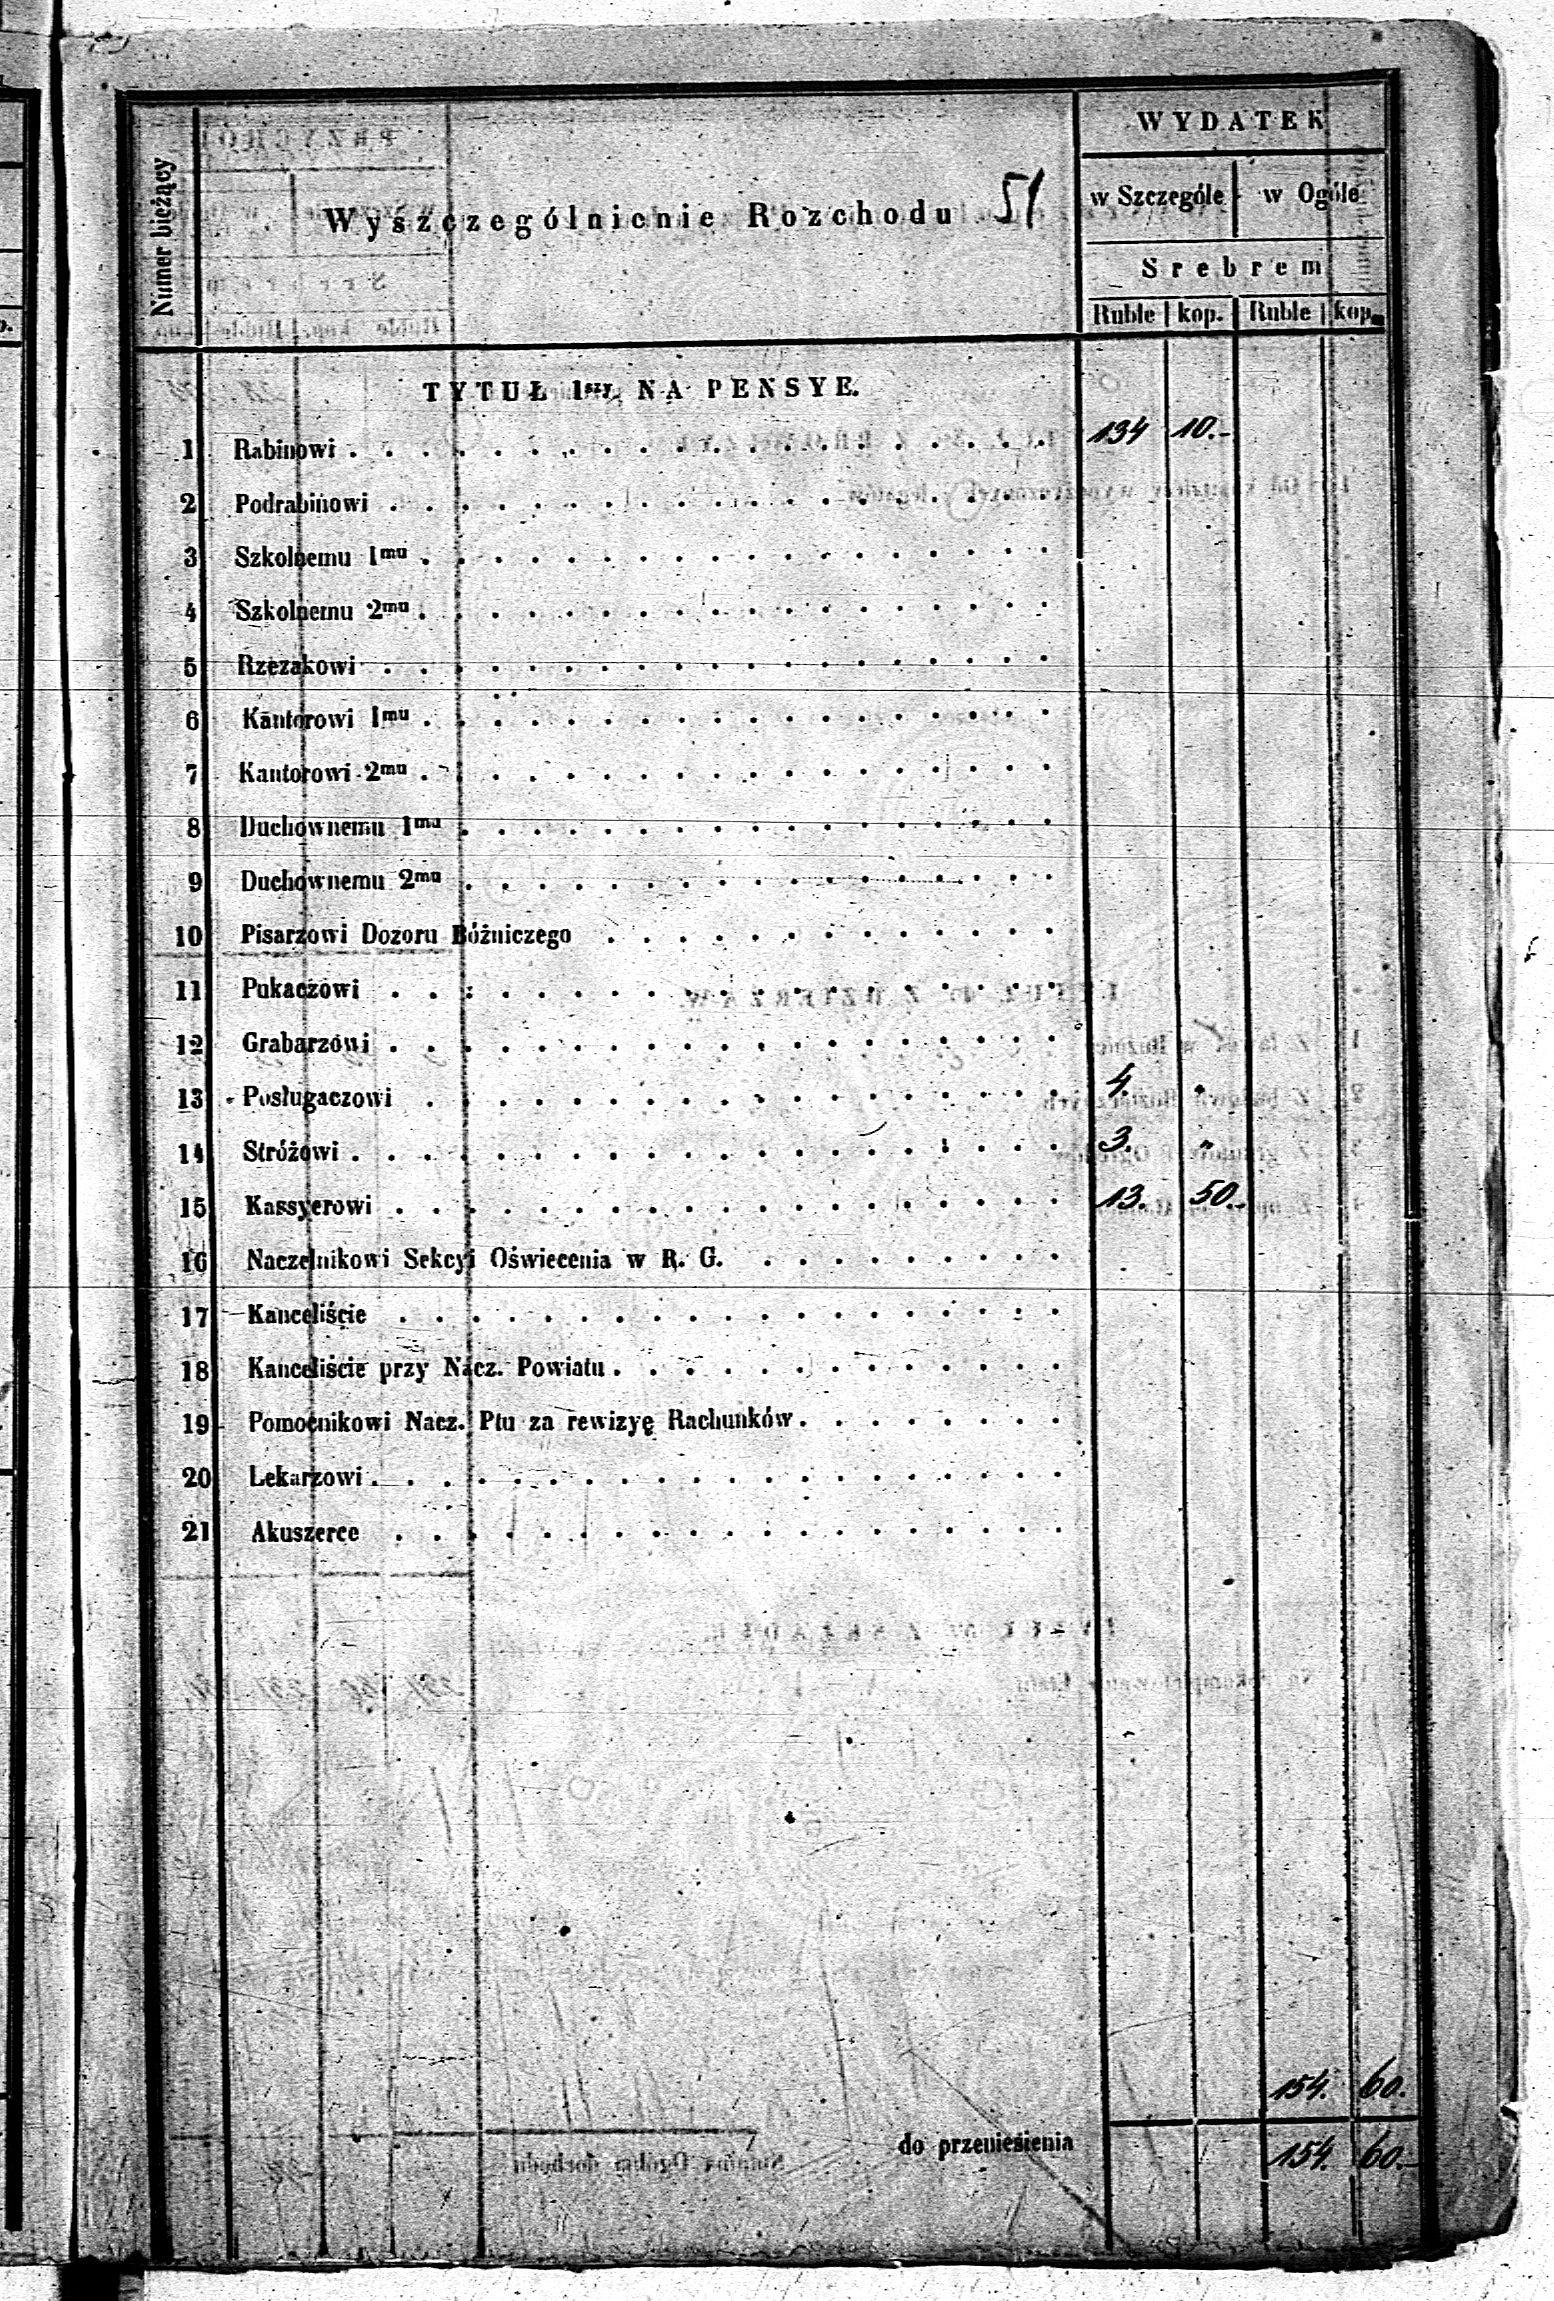 WYDATEK
Numer bieżący
Wyszczególnienie Rozchodu 51
w Szczególe w Ogóle
Srebrem
Ruble kop. Ruble kop.
TYTUŁ 1szy NA PENSYE.
1 Rabinowi 134 10.-
2 Podrabinowi
3 Szkolnemu 1mu
4 Szkolnemu 2mu
5 Rzezakowi
6 Kantorowi 1mu
7 Kantorowi 2mu
8 Duchownemu 1mu
9 Duchownemu 2mu
10 Pisarzowi Dozoru Bóżniczego
11 Pukaczowi
12 Grabarzowi
13 Posługaczowi 4. "
14 Stróżowi 3. "
15 Kassyerowi 13. 50.-
16 Naczelnikowi Sekcyi Oświecenia w R. G.
17 Kanceliście
18 Kanceliście przy Nacz. Powiatu
19 Pomocnikowi Nacz. Ptu za rewizyę Rachunków
20 Lekarzowi
21 Akuszerce
154. 60.
do przeniesienia 154. 60.-